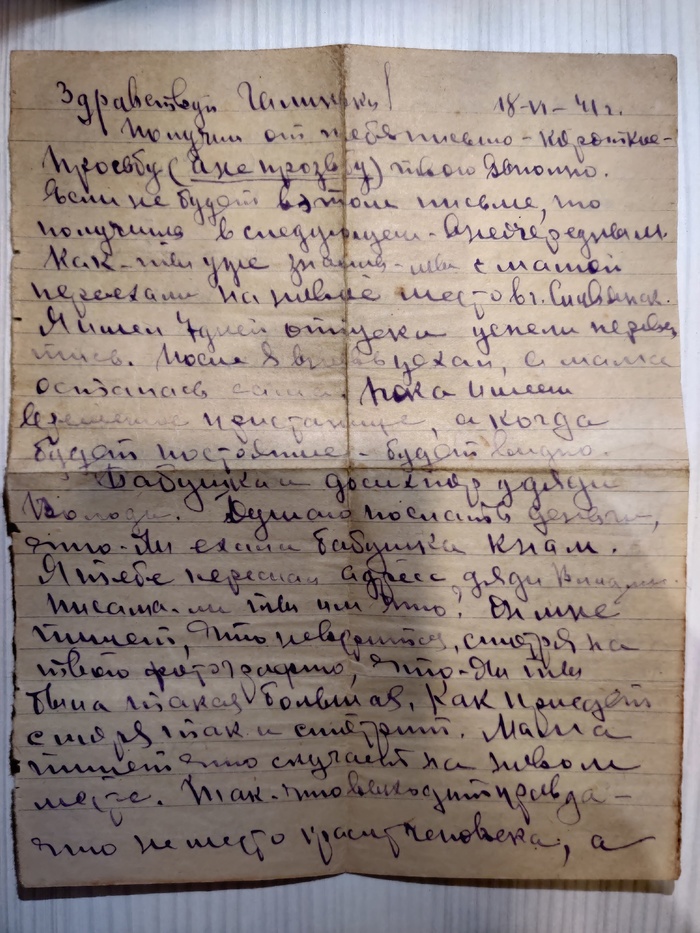 Здравствуй Галинка! 18-VI-41г.
Получил от тебя письмо-короткое-
Просьбу (а не прозьбу) твою выполню.
Если не будет в этом письме, то
получишь в следующем-внеочередным.
Как-ты уже знаешь-мы с мамой
переехали на новое место в г. Славянск.
Я имел 7 дней отпуска успели перевез
тись. После я вновь уехал, а мама
осталась сама. Пока имеем
временное пристанище, а когда
будет постоянное-будет видно.
Бабушка и до сих пор у дяди
Володи. Думаю послать деньги,
что-бы ехала бабушка к нам.
Я тебе переслал адрес дяди
писала-ли ты им что? Он мне
пишет, что не верится, смотря на
твою фотографию, что-бы ты
была такая большая, как приедет
с моря так и смотрит. Мама
пишет что скучает на новом
месте. Так-что выходит правда-
что не место красит человека, а